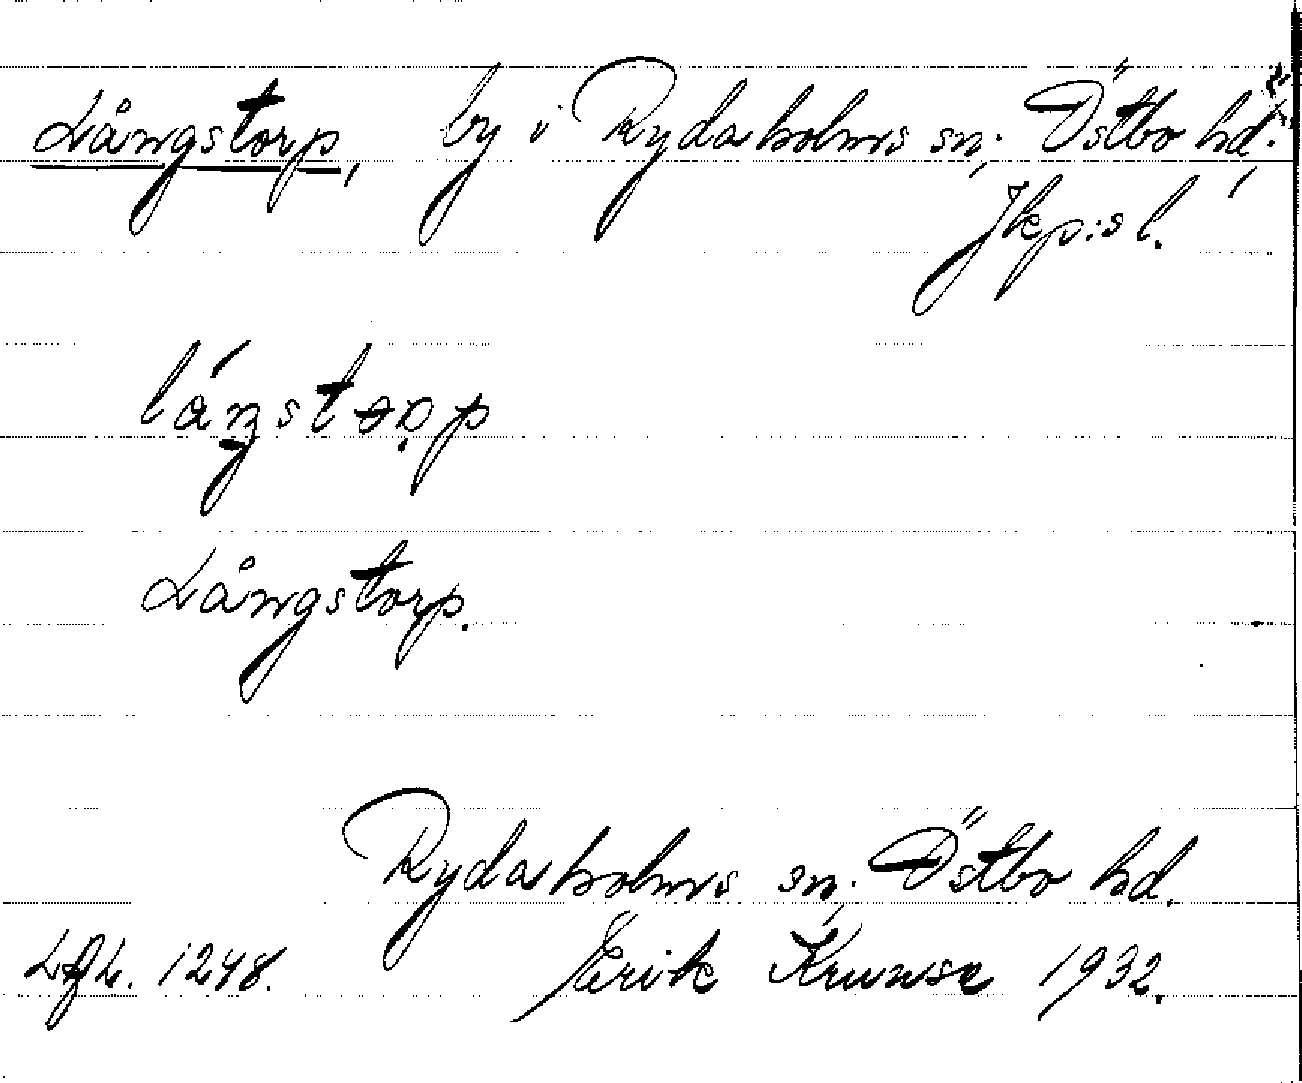 Långstorp, by i Rydaholms sn; Östbo hd.
Jkp:s l.
Långstorp.
Rydaholms sn; Östbo hd.
Erik Krunse 1932.